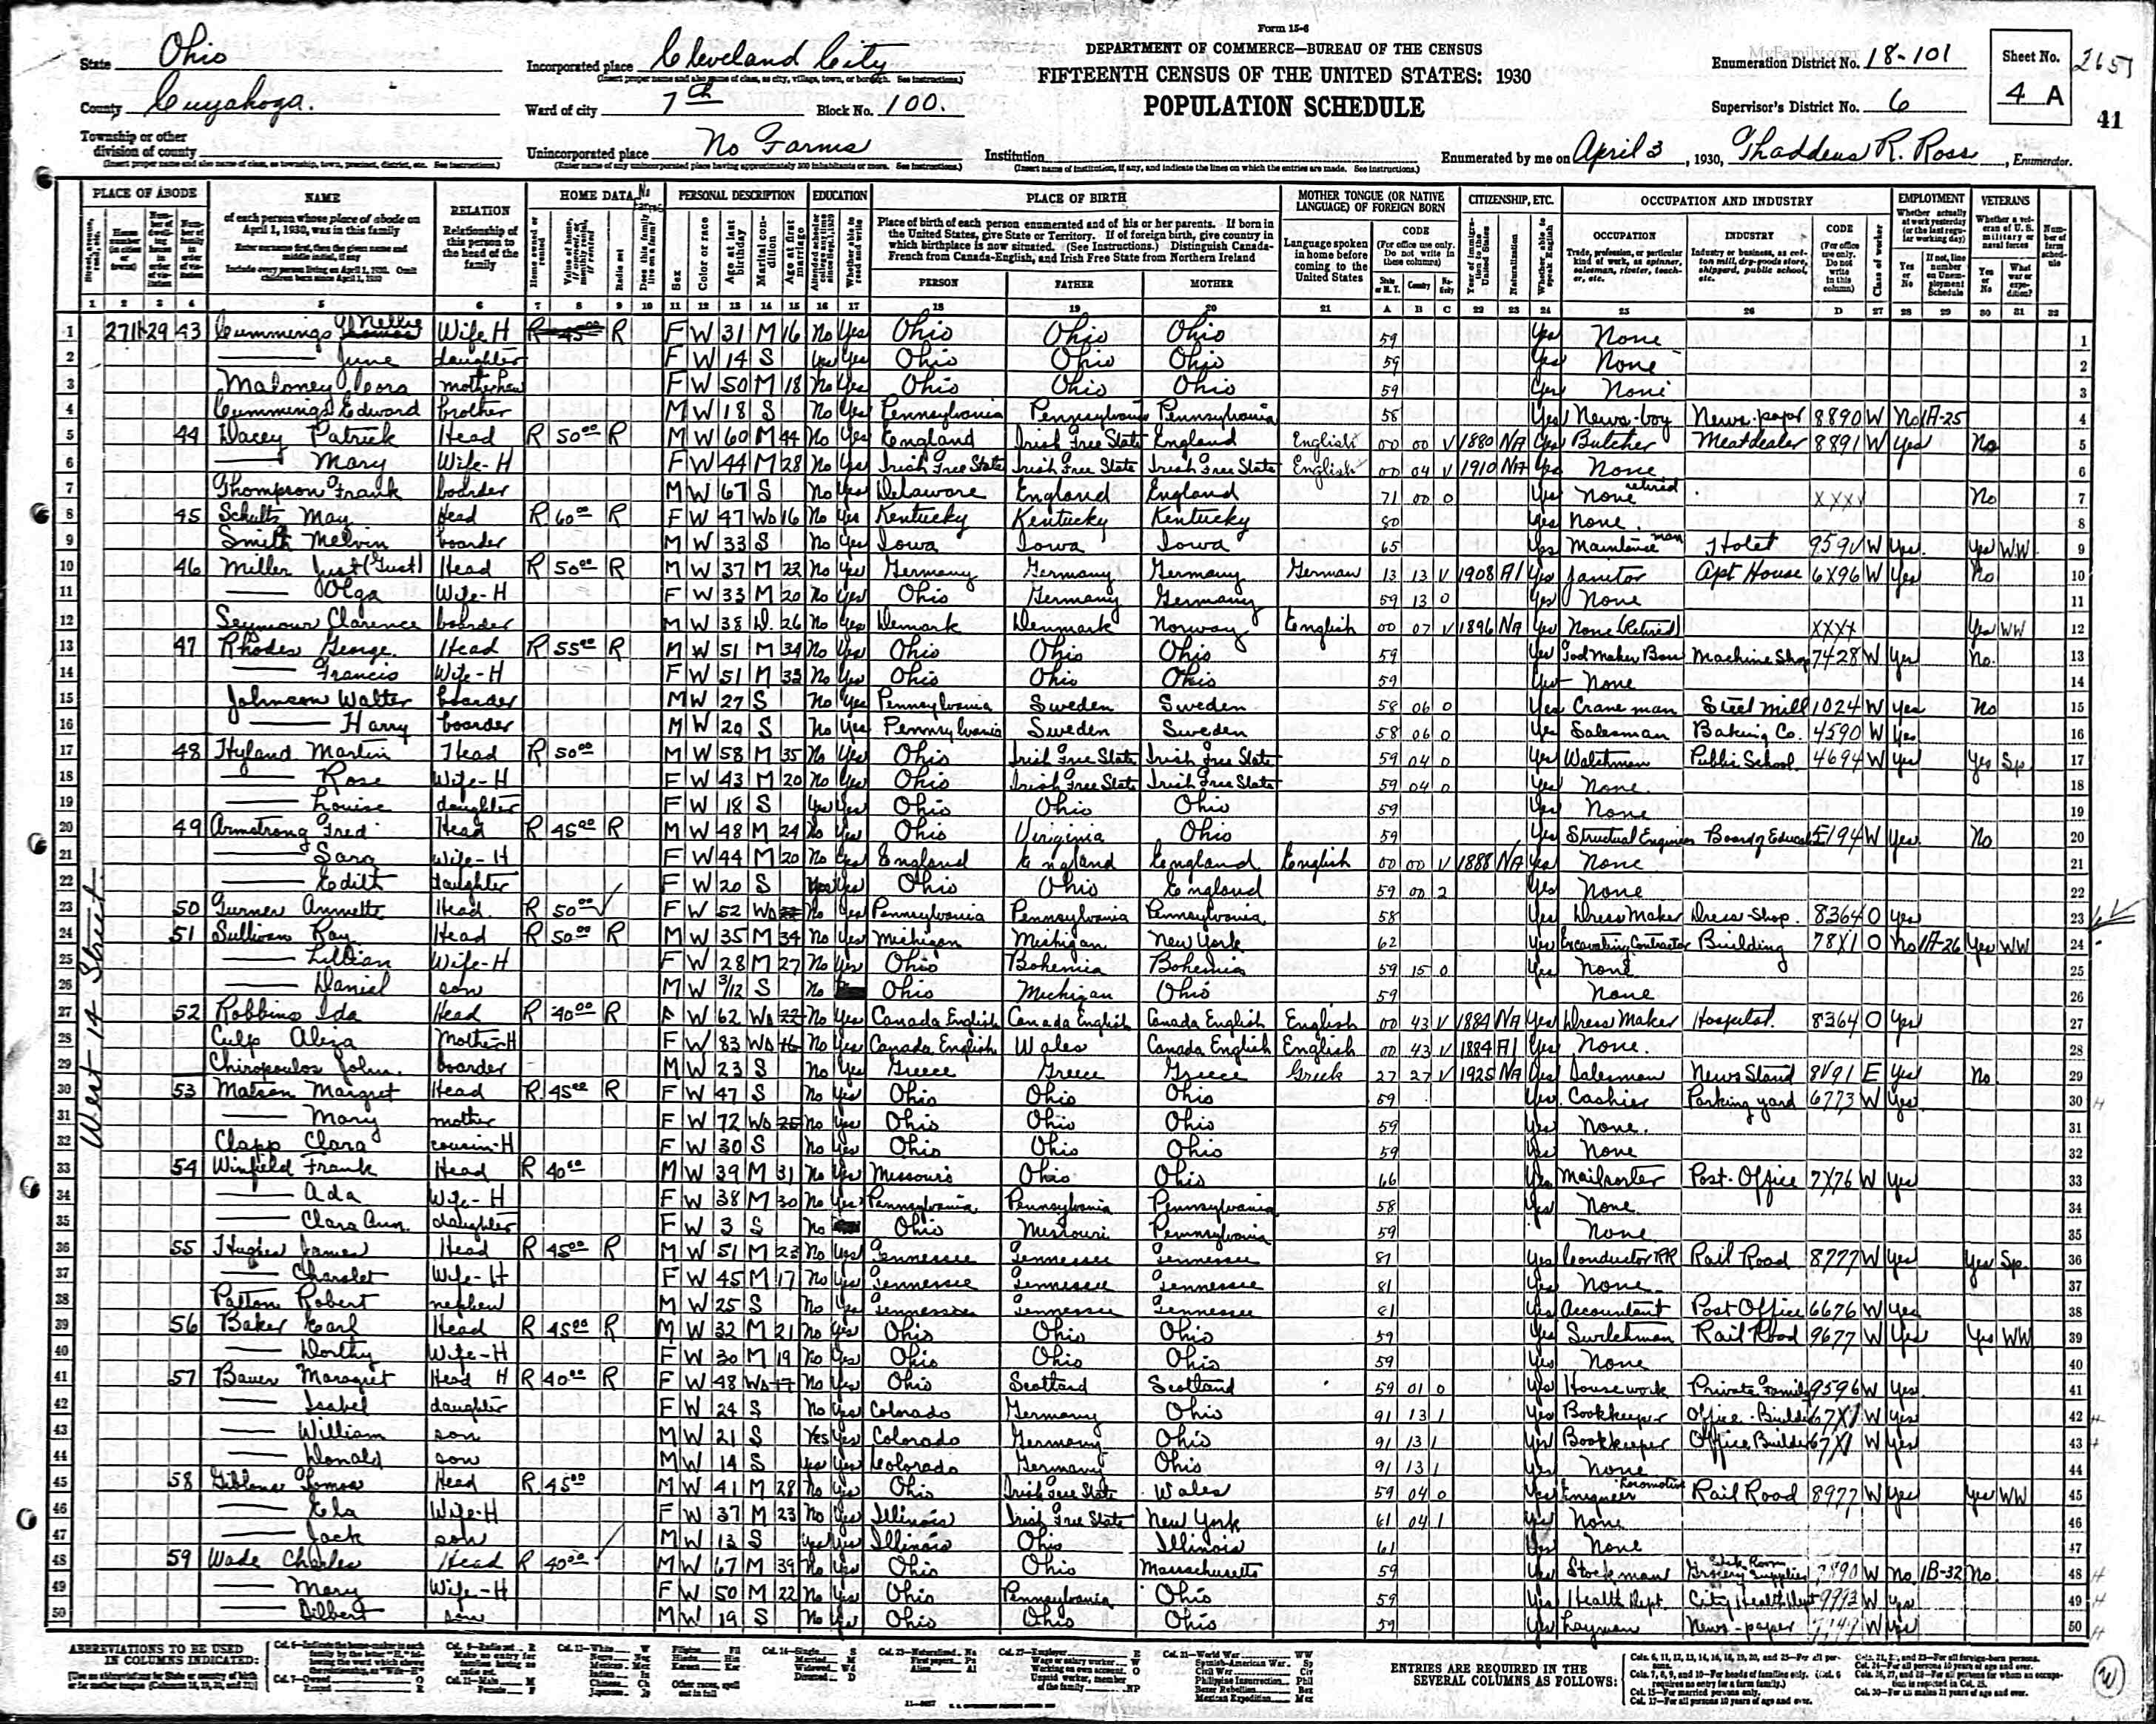 Form 15-6
DEPARTMENT OF COMMERCE—BUREAU OF THE CENSUS
FIFTEENTH CENSUS OF THE UNITED STATES: 1930
POPULATION SCHEDULE
State Ohio
County Cuyahoga.
Township or other division of county
Incorporated place Cleveland City
Ward of city 7th Block No. 100.
Unincorporated place No Farms
Institution
MyFamily.com
Enumeration District No. 18-101
Supervisor's District No. 6
Sheet No. 4 A
41
Enumerated by me on April 3, 1930, Thaddeus R. Ross, Enumerator.
PLACE OF ABODE NAME RELATION HOME DATA PERSONAL DESCRIPTION EDUCATION PLACE OF BIRTH MOTHER TONGUE (OR NATIVE LANGUAGE) OF FOREIGN BORN CITIZENSHIP, ETC. OCCUPATION AND INDUSTRY EMPLOYMENT VETERANS
of each person whose place of abode on April 1, 1930, was in this family
Relationship of this person to the head of the family
Place of birth of each person enumerated and of his or her parents. If born in the United States, give State or Territory. If of foreign birth, give country in which birthplace is now situated. (See Instructions.) Distinguish Canada-French from Canada-English, and Irish Free State from Northern Ireland
PERSON FATHER MOTHER
Language spoken in home before coming to the United States
CODE OCCUPATION INDUSTRY CODE
1 2 3 4 5 6 7 8 9 10 11 12 13 14 15 16 17 18 19 20 21 A B C 22 23 24 25 26 D 27 28 29 30 31 32
West 14 Street
1 2711 29 43 Cummings Nelly Wife H R R F W 31 M 16 No Yes Ohio Ohio Ohio 59 Yes None 1
2 June daughter F W 14 S Yes Yes Ohio Ohio Ohio 59 Yes None 2
3 Maloney Cora F W 50 M 18 No Yes Ohio Ohio Ohio 59 Yes None 3
4 Cummings Edward brother M W 18 S No Yes Pennsylvania Pennsylvania Pennsylvania 58 Yes News-boy News-paper 8890 W No 1A-25 4
5 44 Dacey Patrick Head R 50.00 R M W 60 M 44 No Yes England Irish Free State England English 00 00 V 1880 NA Yes Butcher Meatdealer 8891 W Yes No 5
6 Mary Wife-H F W 44 M 28 No Yes Irish Free State Irish Free State Irish Free State English 00 04 V 1910 NA Yes None 6
7 Thompson Frank boarder M W 67 S No Yes Delaware England England 71 00 0 Yes None retired XXXX No 7
8 45 Schultz May Head R 60.00 R F W 47 Wd 16 No Yes Kentucky Kentucky Kentucky 80 Yes None. 8
9 Smith Melvin boarder M W 33 S No Yes Iowa Iowa Iowa 65 Yes man Hotel W Yes. Yes WW 9
10 46 Miller Just (Gust) Head R 50.00 R M W 37 M 22 No Yes Germany Germany Germany German 13 13 V 1908 Al Yes Janitor Apt House 6X96 W Yes No 10
11 Olga Wife-H F W 33 M 20 No Yes Ohio Germany Germany 59 13 0 Yes None 11
12 Seymour Clarence boarder M W 38 D. 26 No Yes Demark Denmark Norway English 00 07 V 1896 NA Yes None (Retired) XXXX Yes WW 12
13 47 Rhodes George. Head R 55.00 R M W 51 M 34 No Yes Ohio Ohio Ohio 59 Yes Machine Shop 7428 W Yes No. 13
14 Francis Wife-H F W 51 M 33 No Yes Ohio Ohio Ohio 59 Yes None 14
15 Johnson Walter boarder M W 27 S No Yes Pennsylvania Sweden Sweden 58 06 0 Yes Crane man Steel Mill 1024 W Yes No 15
16 Harry boarder M W 29 S No Yes Pennsylvania Sweden Sweden 58 06 0 Yes Salesman Baking Co. 4590 W Yes 16
17 48 Hyland Martin Head R 50.00 M W 58 M 35 No Yes Ohio Irish Free State Irish Free State 59 04 0 Yes Watchman Public School 4694 W Yes Yes Sp. 17
18 Rose Wife-H F W 43 M 20 No Yes Ohio Irish Free State Irish Free State 59 04 0 Yes None. 18
19 Louise daughter F W 18 S Yes Yes Ohio Ohio Ohio 59 Yes None 19
20 49 Armstrong Fred Head R 45.00 R M W 48 M 24 No Yes Ohio Virginia Ohio 59 Yes Structual Engineer 5194 W Yes. No 20
21 Sara Wife-H F W 44 M 20 No Yes England England England English 00 00 V 1888 NA Yes None 21
22 Edith daughter F W 20 S Yes Yes Ohio Ohio England 59 00 2 Yes None 22
23 50 Turner Annette Head. R 50.00 F W 52 Wd No Yes Pennsylvania Pennsylvania Pennsylvania 58 Yes Dress Maker Dress-Shop. 8364 O Yes 23
24 51 Sullivan Ray Head R 50.00 R M W 35 M 34 No Yes Michigan Michigan New York 62 Yes Excavating Contractor Building 78X1 O No 1A-26 Yes WW 24
25 Lillian Wife-H F W 28 M 27 No Yes Ohio Bohemia Bohemia 59 15 0 Yes None 25
26 Daniel son M W 3/12 S No Ohio Michigan Ohio 59 None 26
27 52 Robbins Ida Head R 40.00 R F W 62 Wd 22 No Yes Canada English Canada English Canada English English 00 43 V 1884 NA Yes Dress Maker Hospital. 8364 O Yes 27
28 Culp Aliza Mother-H F W 83 Wd No Yes Canada English Wales Canada English English 00 43 V 1884 Al Yes None. 28
29 Chiropoulos John. boarder M W 23 S No Yes Greece Greece Greece Greek 27 27 V 1925 NA Yes Salesman News Stand 8V91 E Yes No 29
30 53 Matson Margret Head R 45.00 R F W 47 S No Yes Ohio Ohio Ohio 59 Yes. Cashier Parking yard 6773 W Yes. 30
31 Mary mother F W 72 Wd 25 No Yes Ohio Ohio Ohio 59 Yes None. 31
32 Clapp Clara cousin-H F W 30 S No Yes Ohio Ohio Ohio 59 Yes None 32
33 54 Winfield Frank Head R 40.00 M W 39 M 31 No Yes Missouri Ohio Ohio 66 Yes Post-Office 7X76 W Yes 33
34 Ada Wife-H F W 38 M 30 No Yes Pennsylvania Pennsylvania Pennsylvania 58 Yes None. 34
35 Clara Ann. daughter F W 3 S No Ohio Missouri Pennsylvania 59 None 35
36 55 Hughes James Head R 45.00 R M W 51 M 23 No Yes Tennessee Tennessee Tennessee 81 Yes Conductor RR Rail Road 8777 W Yes Yes Sp. 36
37 Charslet Wife-H F W 45 M 17 No Yes Tennessee Tennessee Tennessee 81 Yes None 37
38 Patton Robert nephew M W 25 S No Yes Tennessee Tennessee Tennessee 81 Yes Accountant Post Office 6676 W Yes 38
39 56 Baker Earl Head R 45.00 R M W 32 M 21 No Yes Ohio Ohio Ohio 59 Yes Rail Road 9677 W Yes Yes WW 39
40 Dorthy Wife-H F W 30 M 19 No Yes Ohio Ohio Ohio 59 Yes None 40
41 57 Bauer Head H R 40.00 R F W 48 Wd 17 No Yes Ohio Scotland Scotland 59 01 0 Yes House work Private Family 9596 W Yes. 41
42 Isabel daughter F W 24 S No Yes Colorado Germany Ohio 91 13 1 Yes Bookkeeper 67X1 W Yes 42
43 William son M W 21 S Yes Yes Colorado Germany Ohio 91 13 1 Yes Bookkeeper 67X1 W Yes 43
44 Donald son M W 14 S Yes Yes Colorado Germany Ohio 91 13 1 Yes None 44
45 58 Head R 45.00 M W 41 M 28 No Yes Ohio Irish Free State Wales 59 04 0 Yes Engineer Locomotive Rail Road 8977 W Yes Yes WW 45
46 Ela Wife-H F W 37 M 23 No Yes Illinois Irish Free State New York 61 04 1 Yes None 46
47 Jack son M W 13 S Yes Yes Illinois Ohio Illinois 61 Yes None 47
48 59 Wade Charles Head R 40.00 M W 67 M 39 No Yes Ohio Ohio Massachusetts 59 Yes Stockman W No 1B-32 No. 48
49 Mary Wife-H F W 50 M 22 No Yes Ohio Pennsylvania Ohio 59 Yes Health Dept. City Health Dept W Yes 49
50 Dilbert son M W 19 S No Yes Ohio Ohio Ohio 59 Yes Layman News-paper W Yes 50
ABBREVIATIONS TO BE USED IN COLUMNS INDICATED:
ENTRIES ARE REQUIRED IN THE SEVERAL COLUMNS AS FOLLOWS: